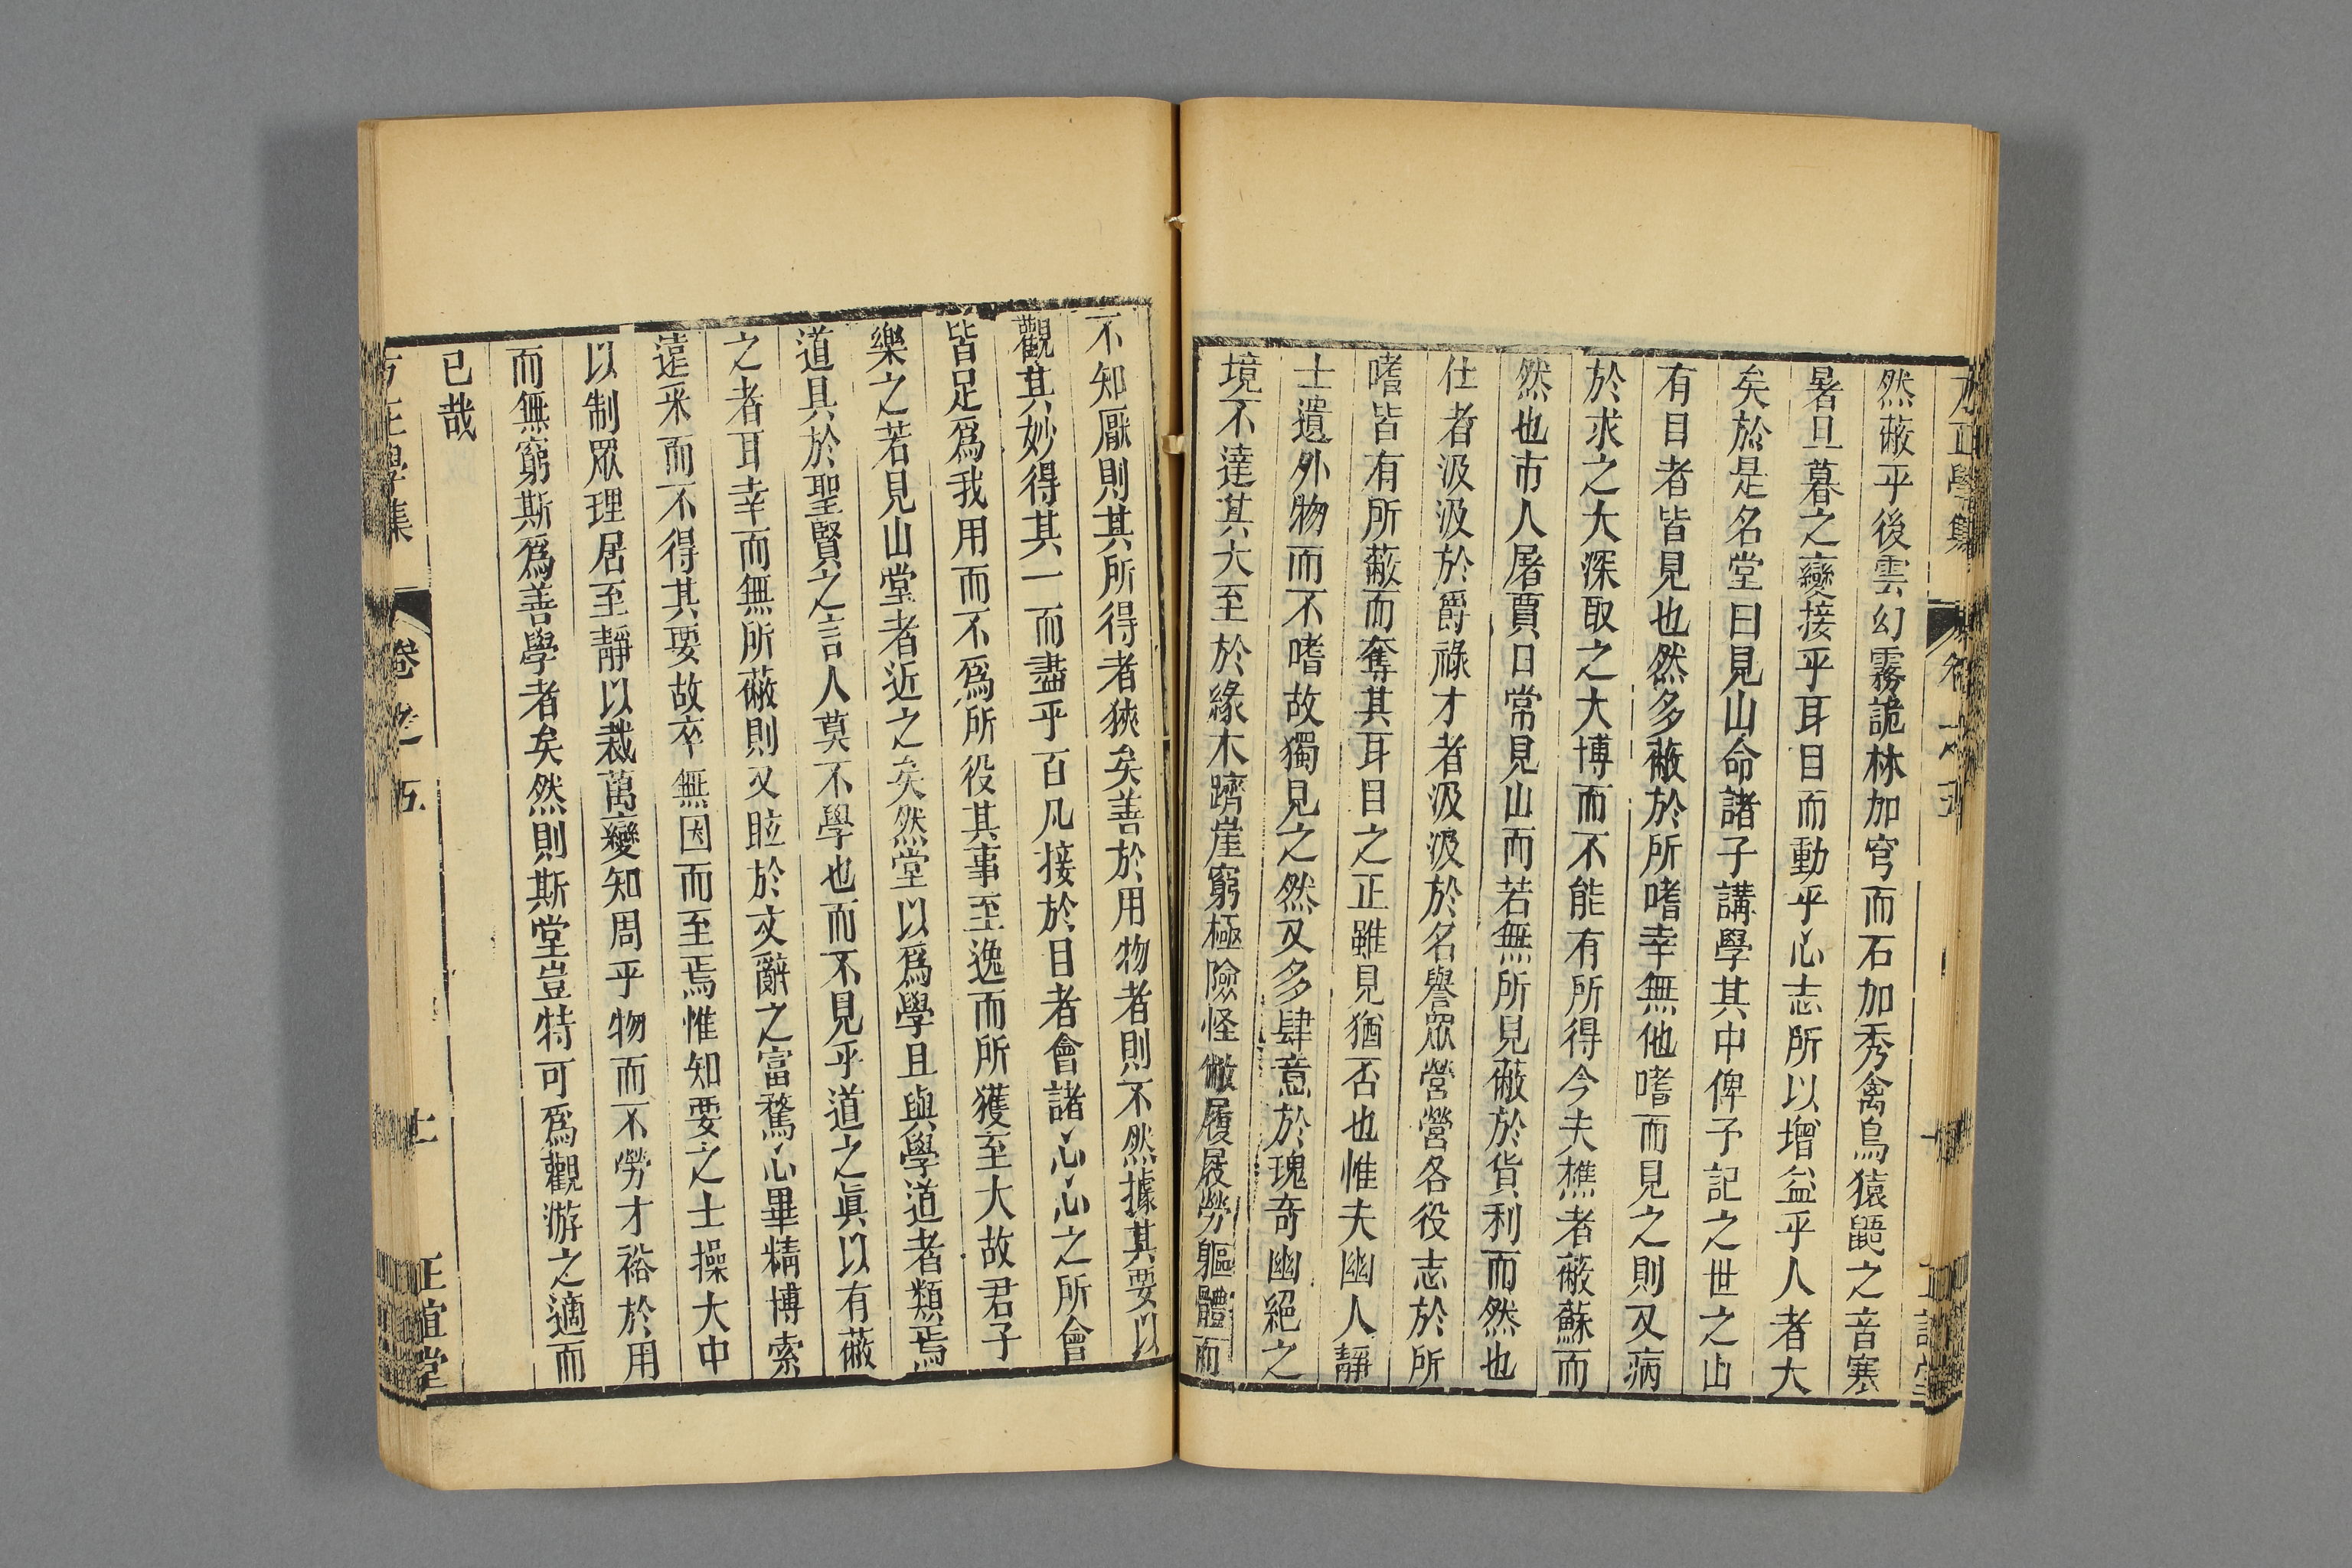 方正學集
卷之五
十
正誼堂
然蔽乎後雲幻霧詭林加穹而石加秀禽鳥猿鼯之音寒
暑旦暮之變接乎耳目而動乎心志所以增益乎人者大
矣於是名堂曰見山命諸子講學其中俾予記之世之山
有目者皆見也然多蔽於所嗜幸無他嗜而見之則又病
於求之大深取之大博而不能有所得今夫樵者蔽蘇而
然也市人屠賈日常見山而若無所見蔽於貨利而然也
仕者汲汲於爵祿才者汲汲於名譽眾營營各役志於所
嗜皆有所蔽而奪其耳目之正雖見猶否也惟夫幽人靜
士遺外物而不嗜故獨見之然又多肆意於瑰奇幽絕之
境不達其大至於緣木躋崖窮極險怪敝履屐勞軀體而
不知厭則其所得者狹矣善於用物者則不然據其要以
觀其妙得其一而盡乎百凡接於目者會諸心心之所會
皆足爲我用而不爲所役其事至逸而所獲至大故君子
樂之若見山堂者近之矣然堂以爲學且與學道者類焉
道具於聖賢之言人莫不學也而不見乎道之眞以有蔽
之者耳幸而無所蔽則又眩於文辭之富騖心畢精博索
遠采而不得其要故卒無因而至焉惟知要之士操大中
以制眾理居至靜以裁萬變知周乎物而不勞才裕於用
而無窮斯爲善學者矣然則斯堂豈特可爲觀游之適而
已哉
方正學集
卷之五
士
正誼堂